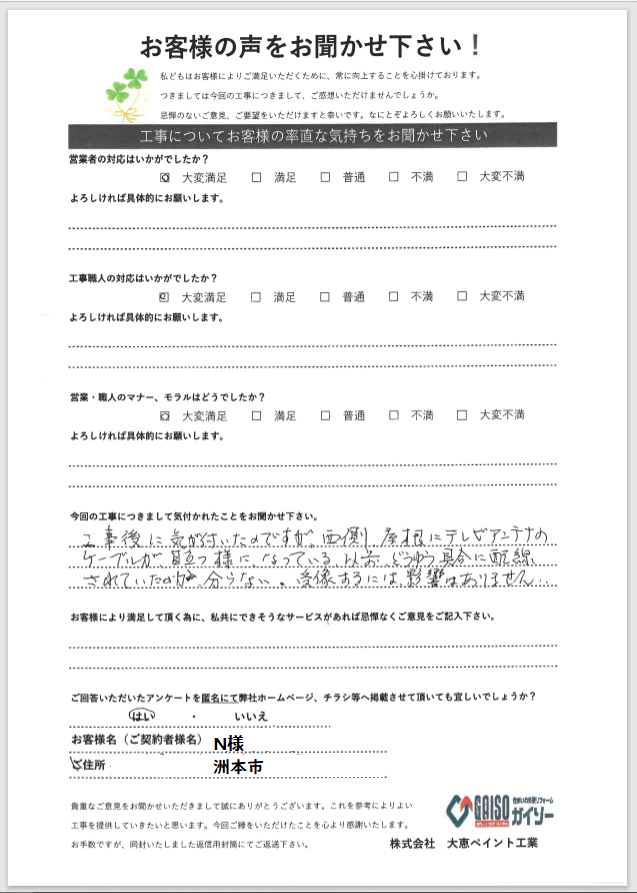 お客様の声をお聞かせ下さい！
私どもはお客様によりご満足いただくために、常に向上することを心掛けております。
つきましては今回の工事につきまして、ご感想いただけませんでしょうか。
忌憚のないご意見、ご要望をいただけますと幸いです。なにとぞよろしくお願いいたします。
工事についてお客様の率直な気持ちをお聞かせ下さい
営業者の対応はいかがでしたか？
☑ 大変満足 □ 満足 □ 普通 □ 不満 □ 大変不満
よろしければ具体的にお願いします。
工事職人の対応はいかがでしたか？
☑ 大変満足 □ 満足 □ 普通 □ 不満 □ 大変不満
よろしければ具体的にお願いします。
営業・職人のマナー、モラルはどうでしたか？
☑ 大変満足 □ 満足 □ 普通 □ 不満 □ 大変不満
よろしければ具体的にお願いします。
今回の工事につきまして気付かれたことをお聞かせ下さい。
工事後に気が付いたのですが、西側屋根にテレビアンテナの
ケーブルが、目立つ様になっている、以前、どうゆう具合に配線
されていたのか、分らない。受像するには影響はありません…
お客様により満足して頂く為に、私共にできそうなサービスがあれば忌憚なくご意見をご記入下さい。
ご回答いただいたアンケートを匿名にて弊社ホームページ、チラシ等へ掲載させて頂いても宜しいでしょうか？
はい ・ いいえ
お客様名（ご契約者様名） N様
住所 洲本市
貴重なご意見をお聞かせいただきまして誠にありがとうございます。これを参考によりよい
工事を提供していきたいと思います。今回ご縁をいただけたことを心より感謝いたします。
お手数ですが、同封いたしました返信用封筒にてご返送下さい。
GAISO
住まいの外装リフォーム
ガイソー
株式会社 大恵ペイント工業